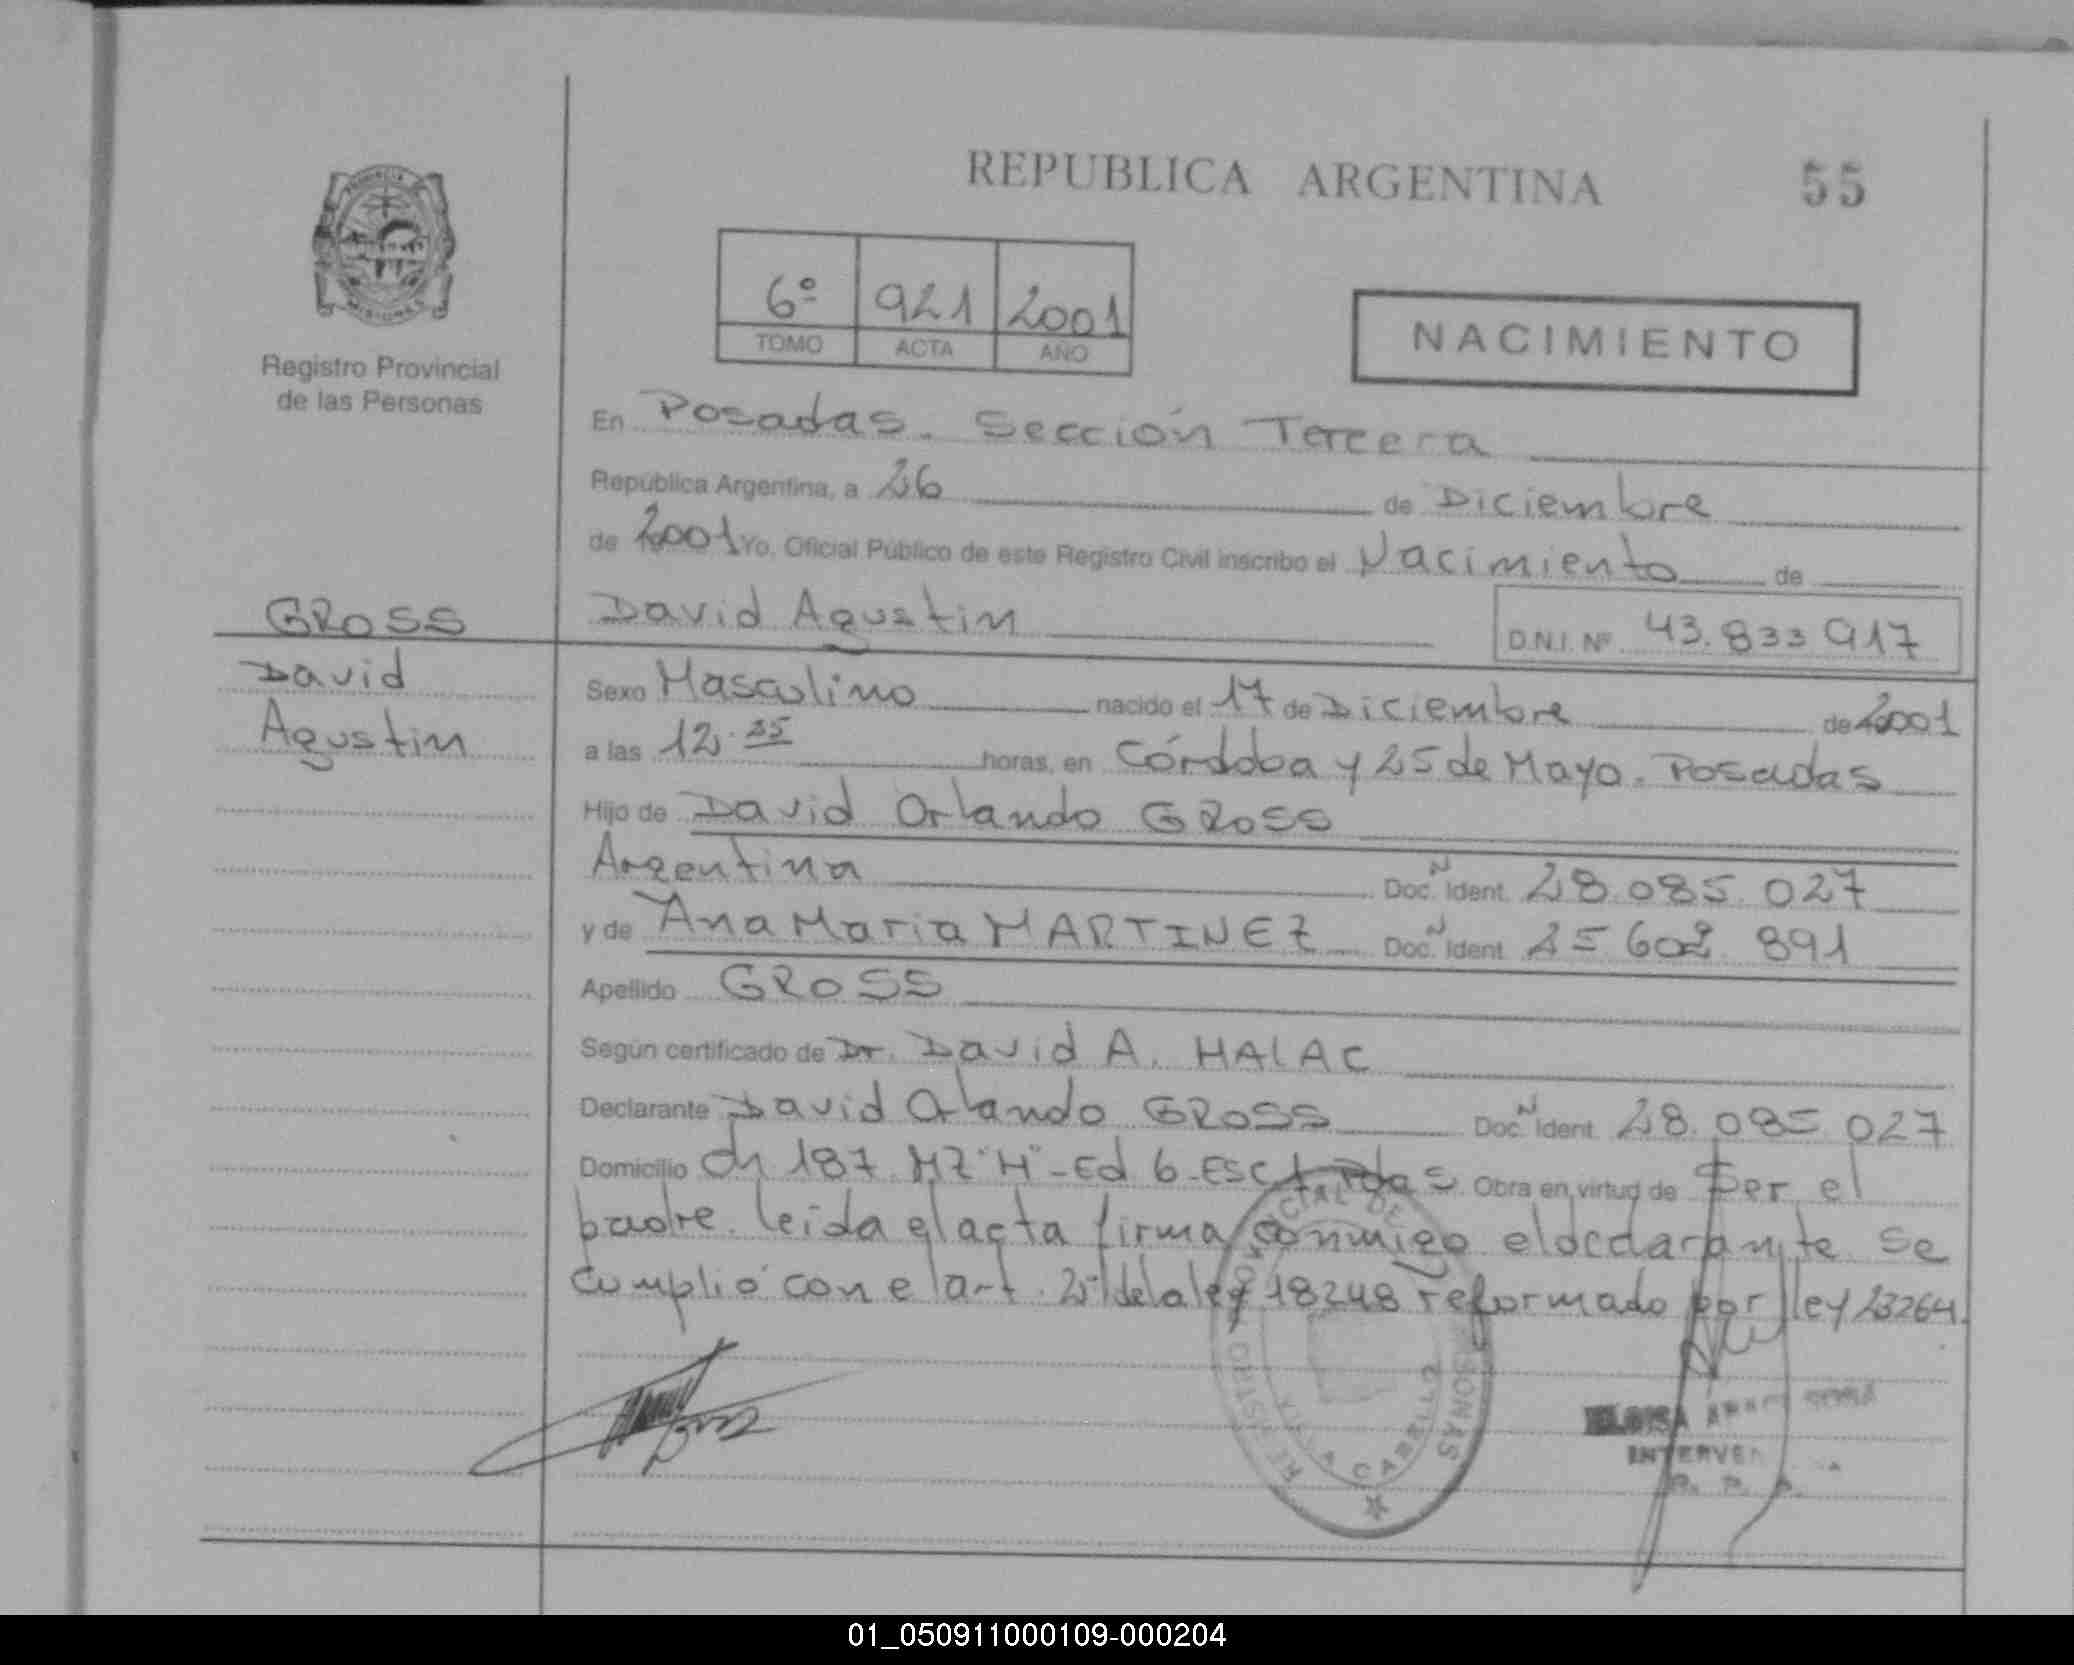 REPUBLICA ARGENTINA
55
PROVINCIA
MISIONES
Registro Provincial
de las Personas
6º 921 2001
TOMO ACTA AÑO
NACIMIENTO
En Posadas. Sección Tercera
República Argentina, a 26 de Diciembre
de 2001 Yo, Oficial Público de este Registro Civil inscribo el Nacimiento de
GROSS
David Agustin
D.N.I. Nº 43.833 917
David
Agustin
Sexo Masculino nacido el 17 de Diciembre de 2001
a las 12.35 horas, en Córdoba y 25 de Mayo. Posadas
Hijo de David Orlando GROSS
Argentina Doc. Ident. N 28.085.027
y de Ana Maria MARTINEZ Doc. Ident. N 25.602.891
Apellido GROSS
Según certificado de Dr. David A. HALAC
Declarante David Orlando GROSS Doc. Ident. N 28.085.027
Domicilio Ch 187 MZ "H" - Ed 6 - Esc Pdas Obra en virtud de Ser el
padre. leida el acta firma conmigo el declarante se
cumplió con el art. 2º de la ley 18248 reformado por ley 23264.
SONAS
CABRITO
ELOISA
INTERVEN
R. P. P.
01_050911000109-000204